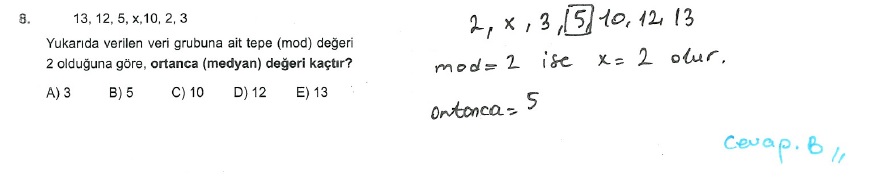 8. 13, 12, 5, x,10, 2, 3
Yukarıda verilen veri grubuna ait tepe (mod) değeri
2 olduğuna göre, ortanca (medyan) değeri kaçtır?
A) 3 B) 5 C) 10 D) 12 E) 13
2, x, 3, 5, 10, 12, 13
mod = 2 ise x = 2 olur.
ortanca = 5
Cevap. B //